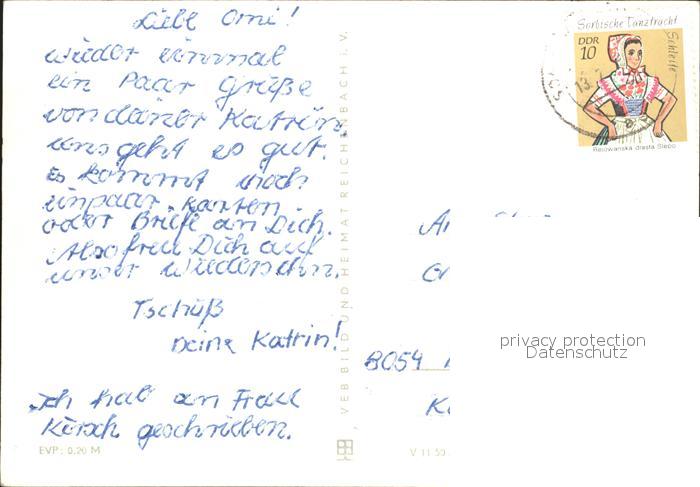 Liebe Omi!
wieder einmal
ein Paar Grüße
von deiner Katrin,
uns geht es gut.
Es kommt noch
ein paar Karten
oder Briefe an Dich.
Also freu Dich auf
unser Wiedersehn.
Tschüß
Deine Katrin!
Ich hab an Frau
Kirsch geschrieben.
EVP: 0,20 M
VEB BILD UND HEIMAT REICHENBACH I. V.
V 11 50
Sorbische Tanztracht
Schleife
DDR
10
Rejowanska drasta Slepo
13.7
8054
privacy protection
Datenschutz